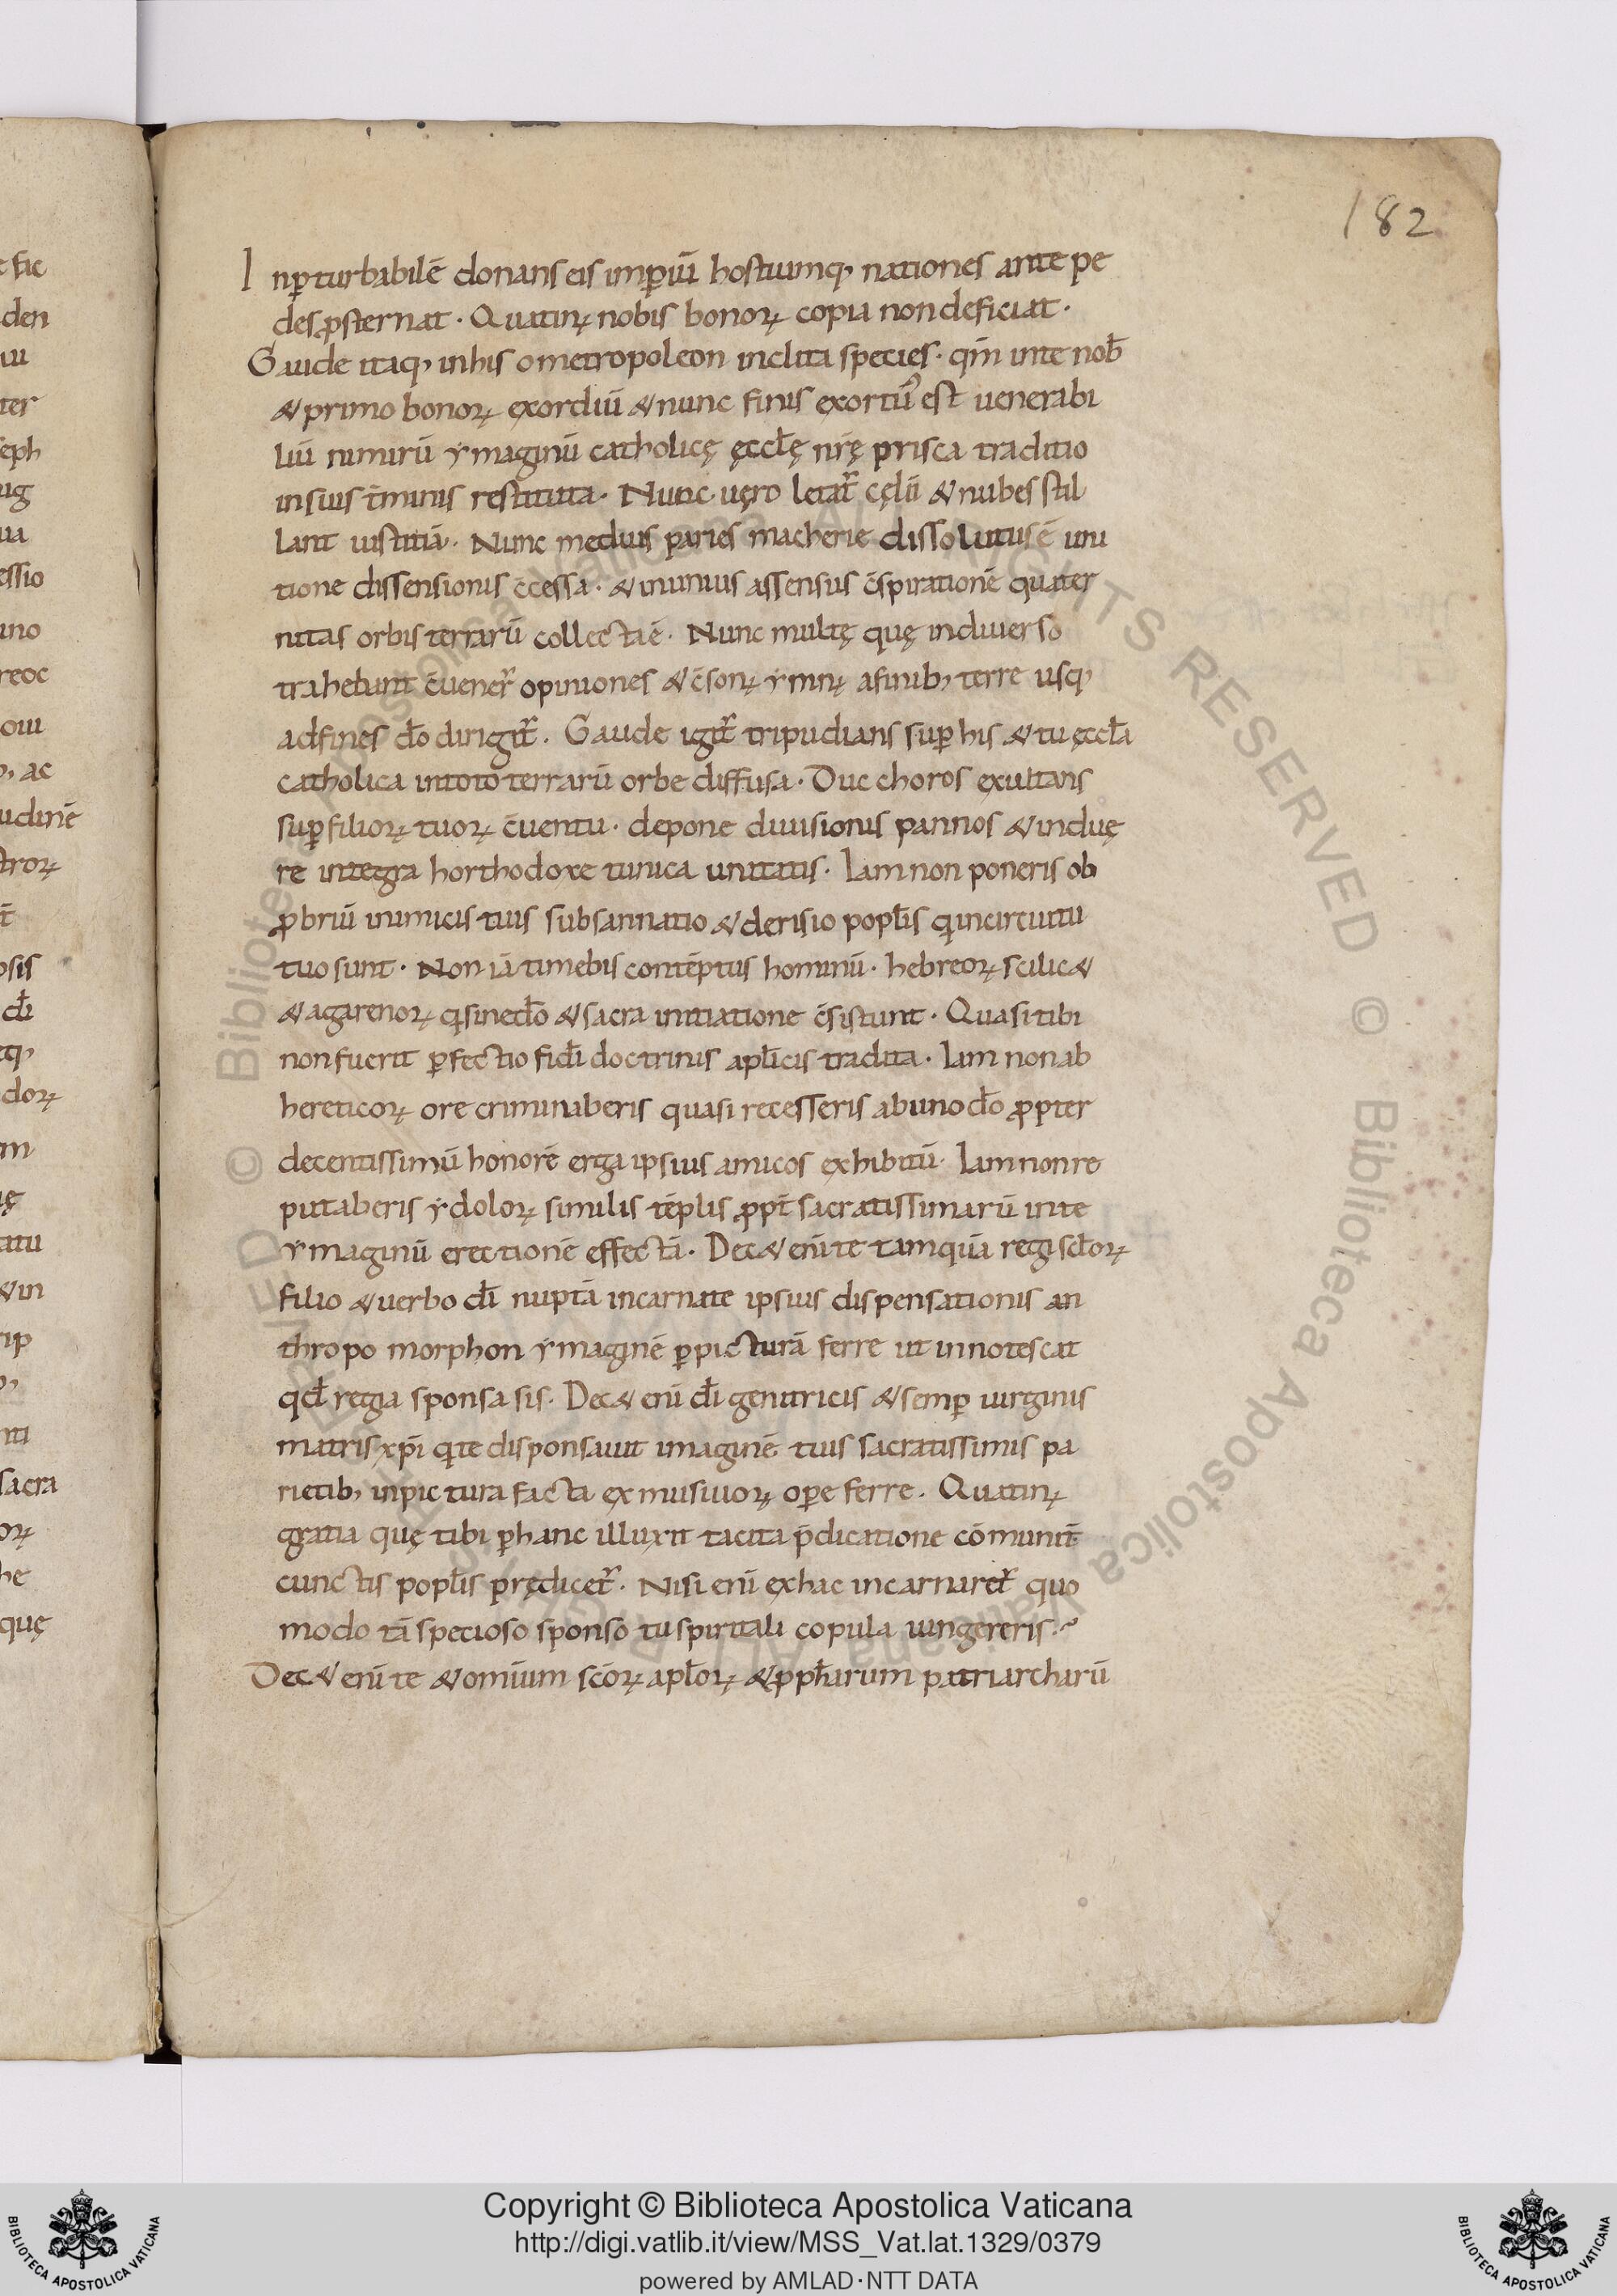 182
Inꝑturbabilē donans eis imꝑiū hostiumq; nationes ante pe
des ꝓsternat. Quatinꝰ nobis bonoꝝ copia non deficiat.
Gaude itaq; in his o metropoleon inclita species. qm̄ in te nob̄
& primo bonoꝝ exordiū & nunc finis exortū est uenerabi
liū nimirū ymaginū catholicę ęccl̄ę nr̄ę prisca traditio
in suis t̄minis restituta. Nunc uęro letat᷑ cęlū & nubes stil
lant iustitiā. Nunc medius paries macherie dissolutus ē uni
tione dissensionis c̄cessa. & inunius assensus c̄spirationē quater
nitas orbis terrarū collecta ē. Nunc multę quę in diuerso
trahebant c̄uener᷑ opiniones & c̄sonꝰ ymnꝰ a finib; terre usq;
ad fines dō dirigit᷑. Gaude igit᷑ tripudians suꝑ his & tu ęccl̄a
catholica in toto terrarū orbe diffusa. Duc choros exultans
suꝑ filioꝝ tuoꝝ c̄uentu. depone diuisionis pannos & induę
re integra horthodoxe tunica unitatis. Iam non poneris ob
ꝓbriū inimicis tuis subsannatio & derisio popl̄is qͥ in circuitu
tuo sunt. Non iā timebis contēptus hominū. hebreoꝝ scilic&
& agarenoꝝ qͥ sine dō & sacra initiatione c̄sistunt. Quasi tibi
non fuerit ꝑfectio fidi doctrinis apl̄icis tradita. Iam non ab
hereticoꝝ ore criminaberis quasi recesseris ab uno dō ꝓpter
decentissimū honorē erga ipsius amicos exhibitū. Iam non re
putaberis ydoloꝝ similis tēplis ꝓpt̄ sacratissimarū in te
ymaginū erectionē effectā. Dec& eni te tamquā regi scl̄oꝝ
filio & uerbo dī nuptā incarnate ipsius dispensationis an
thropo morphon ymaginē ꝑ picturā ferre ut innotescat
qd̄ regia sponsa sis. Dec& eni dī genitricis & semꝑ uirginis
matris xp̄i qͥ te disponsauit imaginē tuis sacratissimis pa
rietib; in pictura facta ex musiuoꝝ oꝑe ferre. Quatinꝰ
gratia quę tibi ꝑ hanc illuxit tacita p̄dicatione cōmunit̄
cunctis popl̄is prędicet᷑. Nisi eni ex hac incarnaret᷑ quo
modo tā specioso sponso tu spiritali copula iungereris.
Dec& eni te & omiūm scōꝝ apl̄oꝝ & ꝓph̄arum patriarcharū
Copyright © Biblioteca Apostolica Vaticana
http://digi.vatlib.it/view/MSS_Vat.lat.1329/0379
powered by AMLAD·NTT DATA